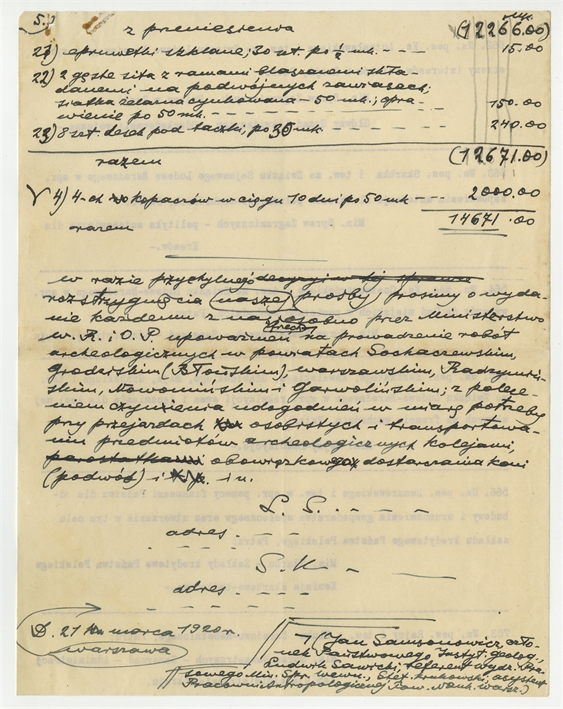 5.)
z przeniesienia (12266.00)
21) epruwetki szklane; 30 szt. po ½ - - - 15.00
22) 2 gęste sita z ramami blaszanemi skła-
danemi na podwójnych zawiasach;
siatka żelazna cynkowana - 50 mk.; opra-
wienie po 50 mk. - - - - - - 150.00
23) 8 szt. desek pod taczki, po 30 mk. - - - 240.00
razem (12671.00)
V 4) 4-ch kopaczów w ciągu 10 dni po 50 mk - - - 2000.00
razem 14671.00
w razie przychylnego decyzji w tej sprawie
rozstrzygnięcia (naszej prośby) prosimy o wyda-
nie każdemu z nas osobno przez Ministerstwo
W. R. i O. P. upoważnień na prowadzenie robót
archeologicznych w powiatach Sochaczewskim,
grodziskim (Błońskim), warszawskim, Radzymiń-
skim, Nowomińskim i Garwolińskim; z polece-
niem czynienia udogodnień w miarę potrzeby
przy przejazdach osobistych i transportowa-
niu przedmiotów archeologicznych kolejami,
obowiązkowego dostarczania koni
(podwód) i t. p. i n.
L. S. - - - -
adres - - - -
S. K - - -
adres - - - -
D. 21 marca 1920 r.
Warszawa
(Jan Samsonowicz, czło-
nek Państwowego Instyt. geolog.,
Ludwik Sawicki, referent wydz. Pra-
sowego Min. Spr. wewn., Stef. Krukowski, asystent
Pracowni Antropologicznej Tow. Nauk. Warsz.)